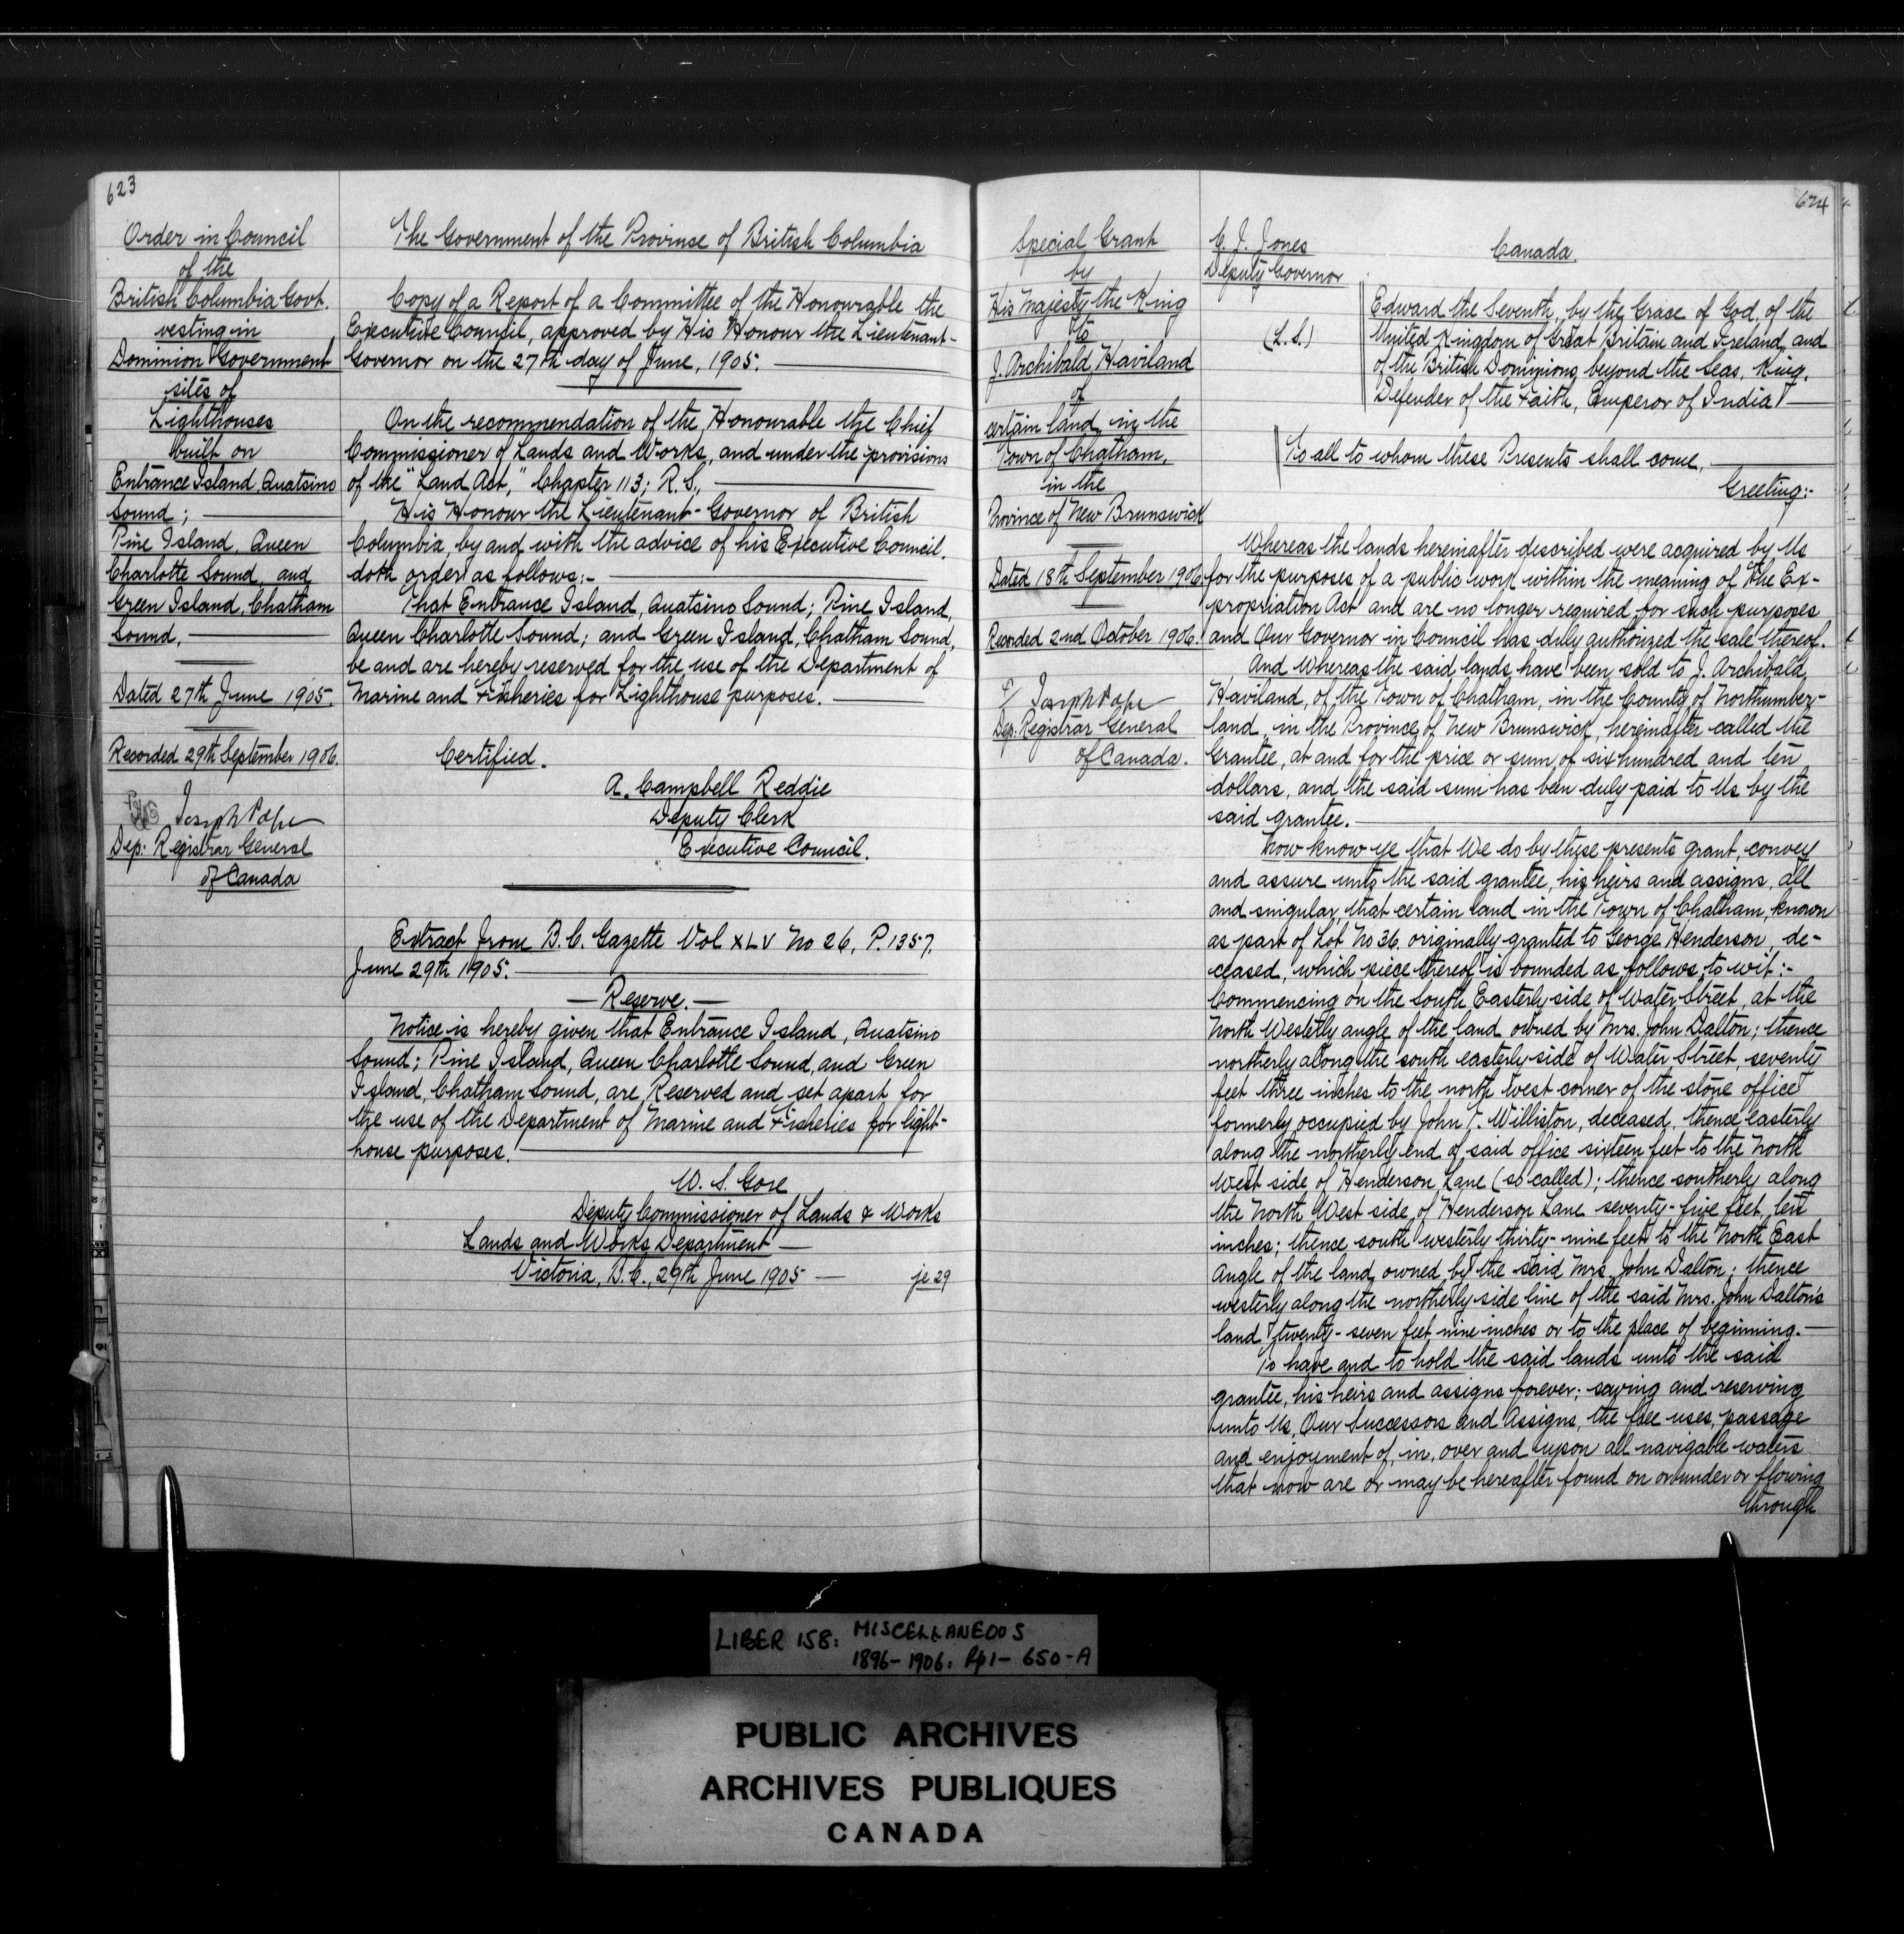 623
Order in Council
of the
British Columbia Govt.
vesting in
Dominion Government
sites of
Lighthouses
built on
Entrance Island, Quatsino
Sound;
Pine Island, Queen
Charlotte Sound, and
Green Island, Chatham
Sound,
Dated 27th June 1905.
Recorded 29th September 1906.
Joseph Pope
Dep: Registrar General
of Canada
The Government of the Province of British Columbia
Copy of a Report of a Committee of the Honourable the
Executive Council, approved by His Honour the Lieutenant-
Governor on the 27th day of June, 1905.
On the recommendation of the Honourable the Chief
Commissioner of Lands and Works, and under the provisions
of the "Land Act," Chapter 113; R.S.,
His Honour the Lieutenant-Governor of British
Columbia, by and with the advice of his Executive Council,
doth order as follows:-
That Entrance Island, Quatsino Sound; Pine Island,
Queen Charlotte Sound; and Green Island, Chatham Sound,
be and are hereby reserved for the use of the Department of
Marine and Fisheries for Lighthouse purposes.
Certified.
A. Campbell Reddie
Deputy Clerk
Executive Council.
Extract from B.C. Gazette Vol XLV No 26, P. 1357,
June 29th 1905.
— Reserve. —
Notice is hereby given that Entrance Island, Quatsino
Sound; Pine Island, Queen Charlotte Sound, and Green
Island, Chatham Sound, are Reserved and set apart for
the use of the Department of Marine and Fisheries for light-
house purposes.
W. S. Gore
Deputy Commissioner of Lands & Works
Lands and Works Department —
Victoria, B.C., 29th June 1905 — je 29
624
Special Grant
by
His Majesty the King
to
J. Archibald Haviland
of
certain land in the
Town of Chatham,
in the
Province of New Brunswick
Dated 18th September 1906.
Recorded 2nd October 1906.
Joseph Pope
Dep: Registrar General
of Canada.
C. J. Jones
Deputy Governor
Canada.
(L.S.)
Edward the Seventh, by the Grace of God, of the
United Kingdom of Great Britain and Ireland, and
of the British Dominions beyond the Seas, King,
Defender of the Faith, Emperor of India
To all to whom these Presents shall come,
Greeting:-
Whereas the lands hereinafter described were acquired by Us
for the purposes of a public work within the meaning of the Ex-
propriation Act and are no longer required for such purposes
and Our Governor in Council has duly authorized the sale thereof.
And Whereas the said lands have been sold to J. Archibald
Haviland, of the Town of Chatham, in the County of Northumber-
land, in the Province of New Brunswick, hereinafter called the
Grantee, at and for the price or sum of six hundred and ten
dollars, and the said sum has been duly paid to Us by the
said grantee.
Now know ye that We do by these presents grant, convey
and assure unto the said grantee, his heirs and assigns, all
and singular, that certain land in the Town of Chatham, known
as part of Lot No 36, originally granted to George Henderson, de-
ceased, which piece thereof is bounded as follows, to wit:-
Commencing on the South Easterly side of Water Street, at the
North Westerly angle of the land owned by Mrs. John Dalton; thence
northerly along the south easterly side of Water Street, seventy
feet three inches to the north west corner of the stone office
formerly occupied by John T. Williston, deceased, thence easterly
along the northerly end of said office sixteen feet to the North
West side of Henderson Lane (so called); thence southerly along
the North West side of Henderson Lane seventy-five feet, ten
inches; thence south westerly thirty-nine feet to the North East
Angle of the land owned by the said Mrs. John Dalton; thence
westerly along the northerly side line of the said Mrs. John Dalton's
land twenty-seven feet nine inches or to the place of beginning.—
To have and to hold the said lands unto the said
grantee, his heirs and assigns forever; saving and reserving
unto Us, Our Successors and Assigns, the free uses, passage
and enjoyment of, in, over and upon all navigable waters
that now are or may be hereafter found on or under or flowing
through
LIBER 158: MISCELLANEOUS
1896-1906: Pp 1- 650-A
PUBLIC ARCHIVES
ARCHIVES PUBLIQUES
CANADA